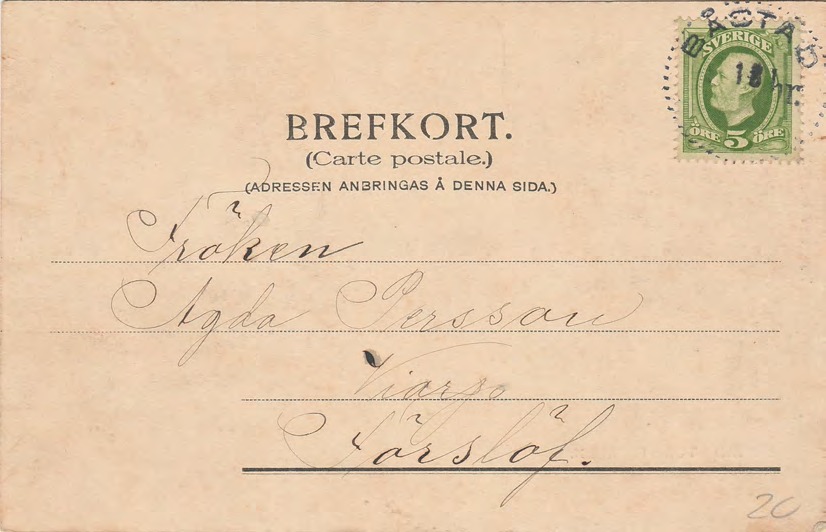 BÅSTAD
SVERIGE
ÖRE 5 ÖRE
BREFKORT.
(Carte postale.)
(ADRESSEN ANBRINGAS Å DENNA SIDA.)
Fröken
Agda Persson
Förslöf.
20